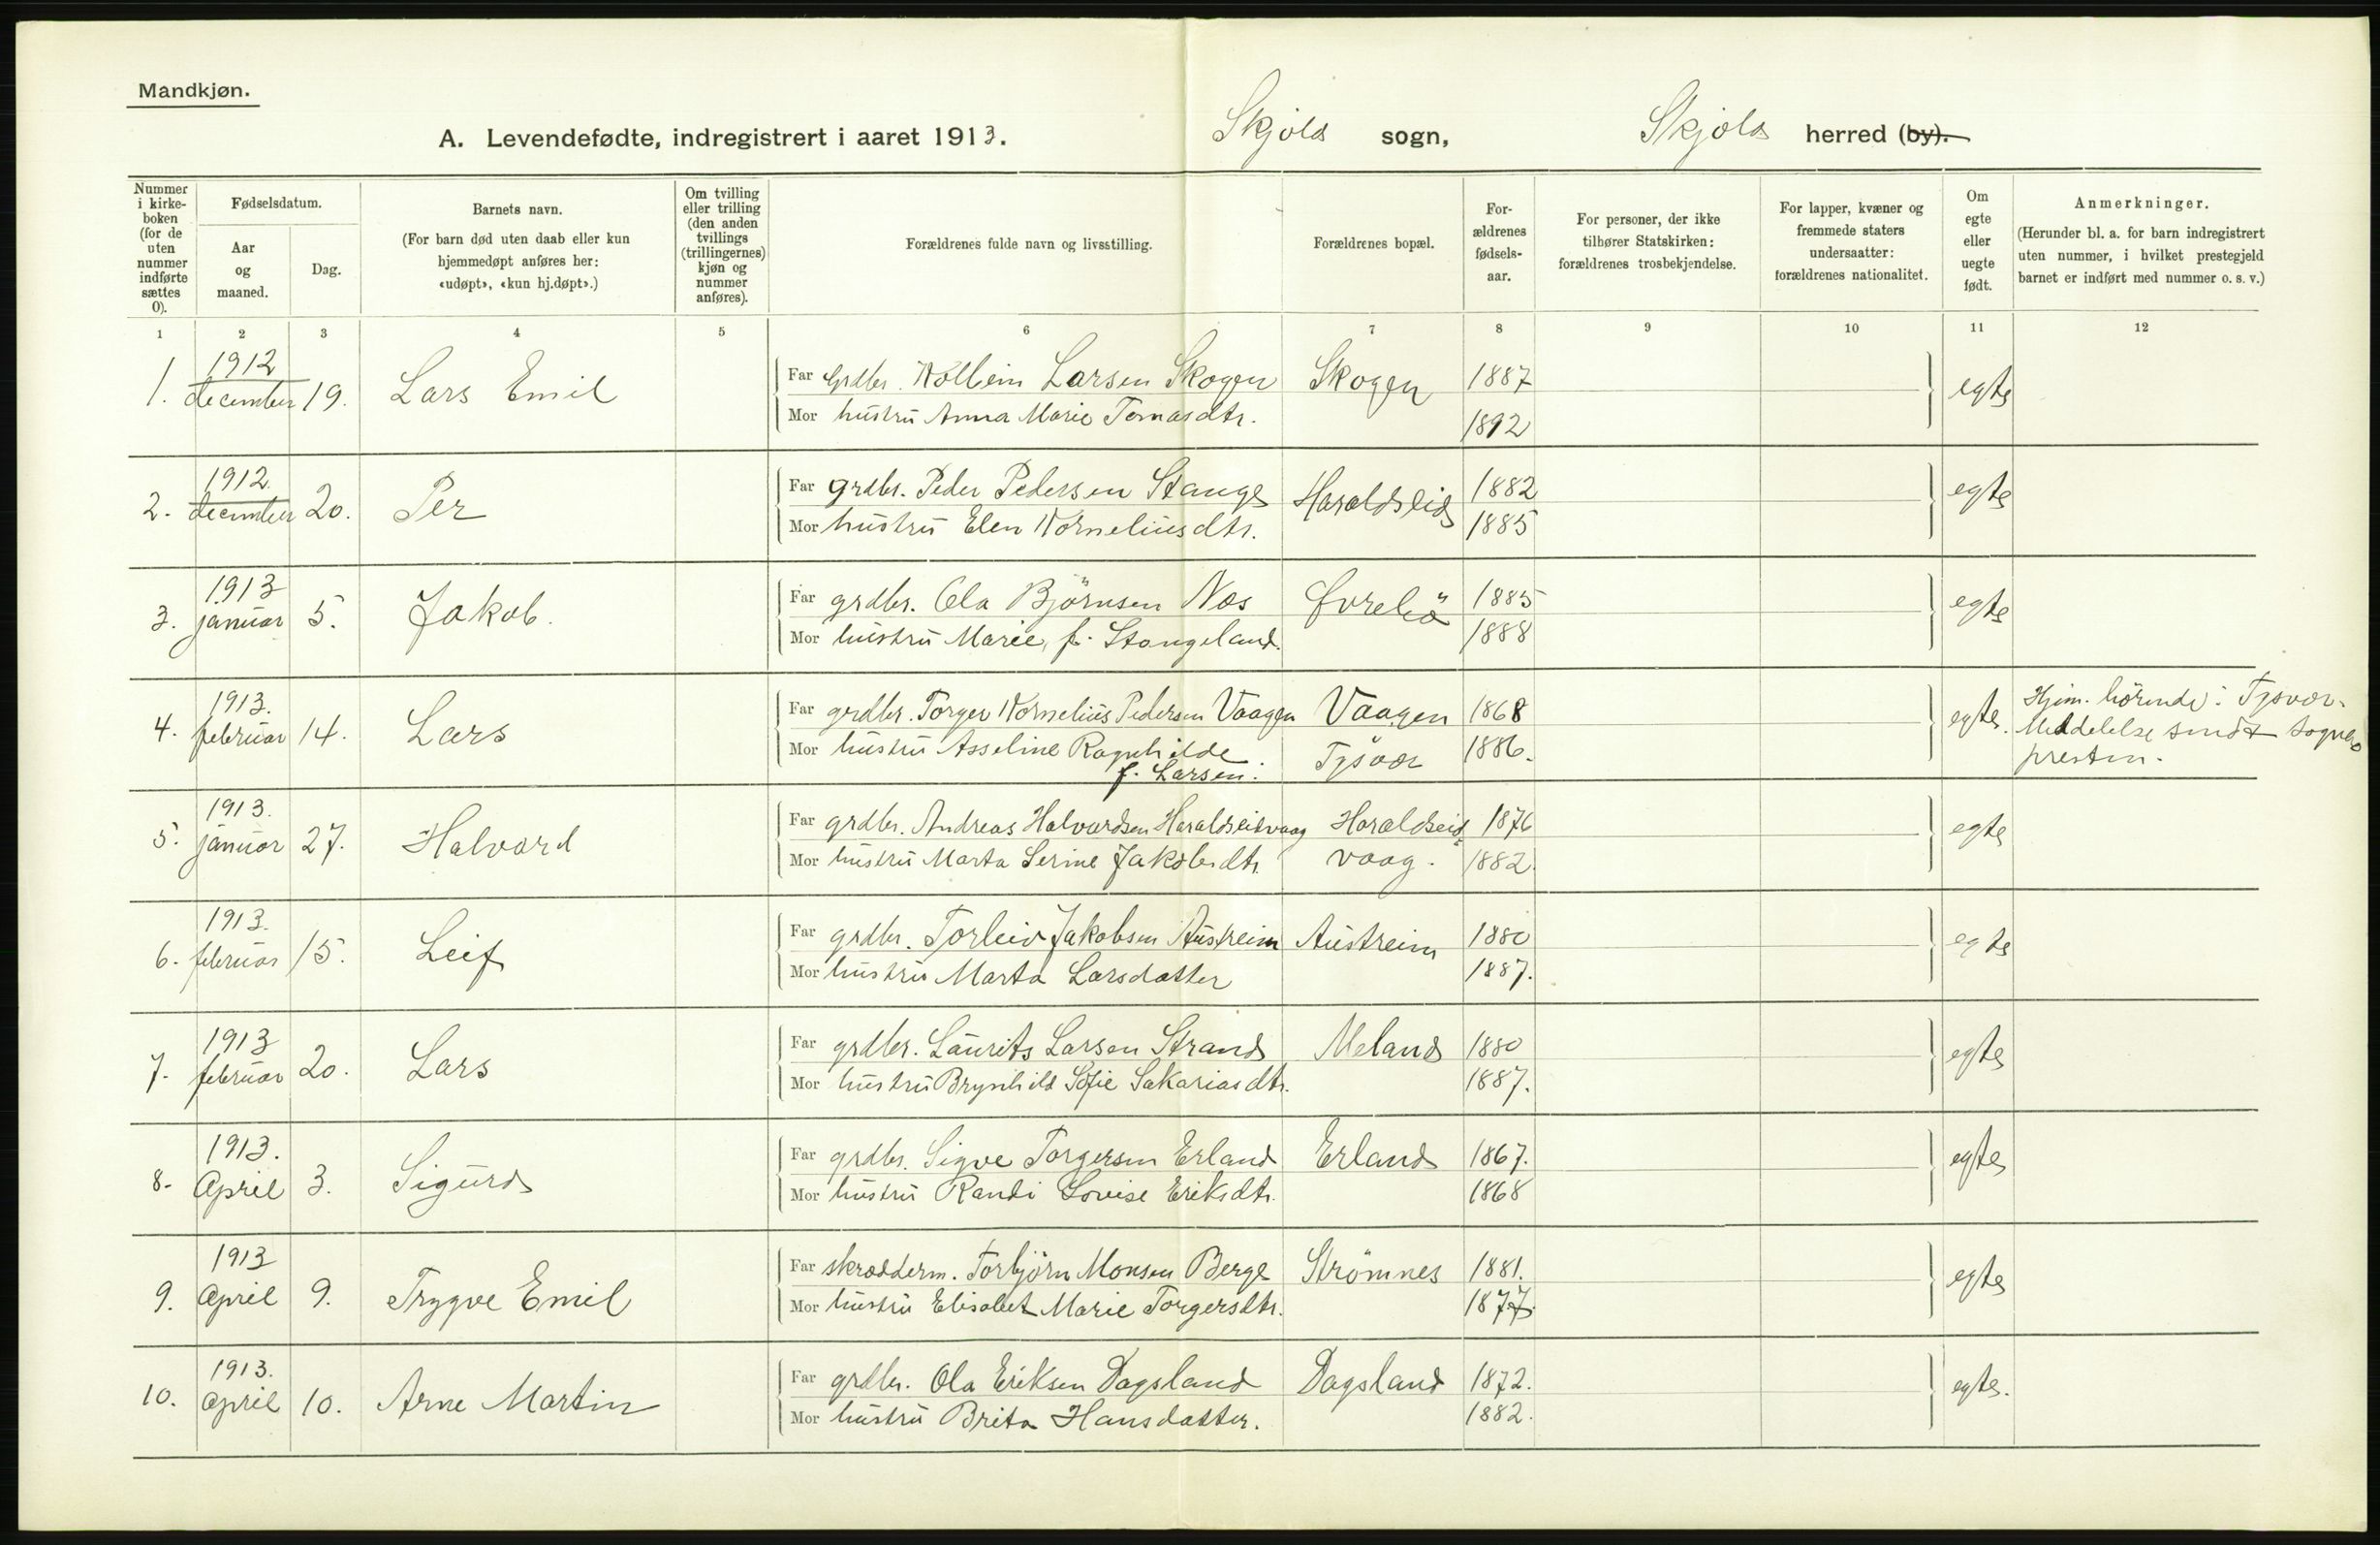 Mandkjøn.
A. Levendefødte, indregistrert i aaret 1913. Skjold sogn, Skjold herred (by).
Nummer i kirkeboken (for de uten nummer indførte sættes 0).
Fødselsdatum.
Aar og maaned.
Dag.
Barnets navn.
(For barn død uten daab eller kun hjemmedøpt anføres her: «udøpt», «kun hj.døpt».)
Om tvilling eller trilling (den anden tvillings (trillingernes) kjøn og nummer anføres).
Forældrenes fulde navn og livsstilling.
Forældrenes bopæl.
Forældrenes fødselsaar.
For personer, der ikke tilhører Statskirken: forældrenes trosbekjendelse.
For lapper, kvæner og fremmede staters undersaatter: forældrenes nationalitet.
Om egte eller uegte født.
Anmerkninger.
(Herunder bl. a. for barn indregistrert uten nummer, i hvilket prestegjeld barnet er indført med nummer o. s. v.)
1 2 3 4 5 6 7 8 9 10 11 12
1. 1912 december 19. Lars Emil
Far Grdbr. Larsen Skogen Skogen 1887 egte
Mor hustru Anna Marie Tomasdtr. 1892
2. 1912 december 20. Per
Far grdbr. Peder Pedersen Stange Haraldseid 1882 egte
Mor hustru Elen Kornelius dtr. 1885
3. 1913 januar 5. Jakob.
Far grdbr. Ola Björnsen Nes Övrebö 1885 egte
Mor hustru Marie, f. Stangeland. 1888
4. 1913. februar 14. Lars
Far grdbr. Torger Kornelius Pedersen Vaagen Vaagen 1868 egte. Hjem. hörende i Tysvær.
Mor hustru Asseline Ragnhilde f. Larsen. Tysvær 1886. Meddelelse sendt sogne
presten.
5. 1913. januar 27. Halvard
Far grdbr. Andreas Halvardsen Haraldseidvaag Haraldseid 1876 egte
Mor hustru Marta Serine Jakobsdtr. vaag. 1882.
6. 1913. februar 15. Leif
Far grdbr. Torleiv Jakobsen Austreim Austreim 1880 egte
Mor hustru Marta Larsdatter 1887.
7. 1913 februar 20. Lars
Far grdbr. Laurits Larsen Strand Meland 1880 egte
Mor hustru Brynhild Sofie Sakariasdtr. 1887.
8. 1913. April 3. Sigurd
Far grdbr. Sigve Torgersen Erland Erland 1867. egte
Mor hustru Randi Lovise Eriksdtr. 1868
9. 1913 April 9. Trygve Emil
Far skrædderm. Torbjörn Monsen Berge Strömnes 1881. egte
Mor hustru Elisabet Marie Torgersdtr. 1877.
10. 1913. April 10. Arne Martin
Far grdbr. Ola Eriksen Dagsland Dagsland 1872. egte.
Mor hustru Brita Hansdatter. 1882.